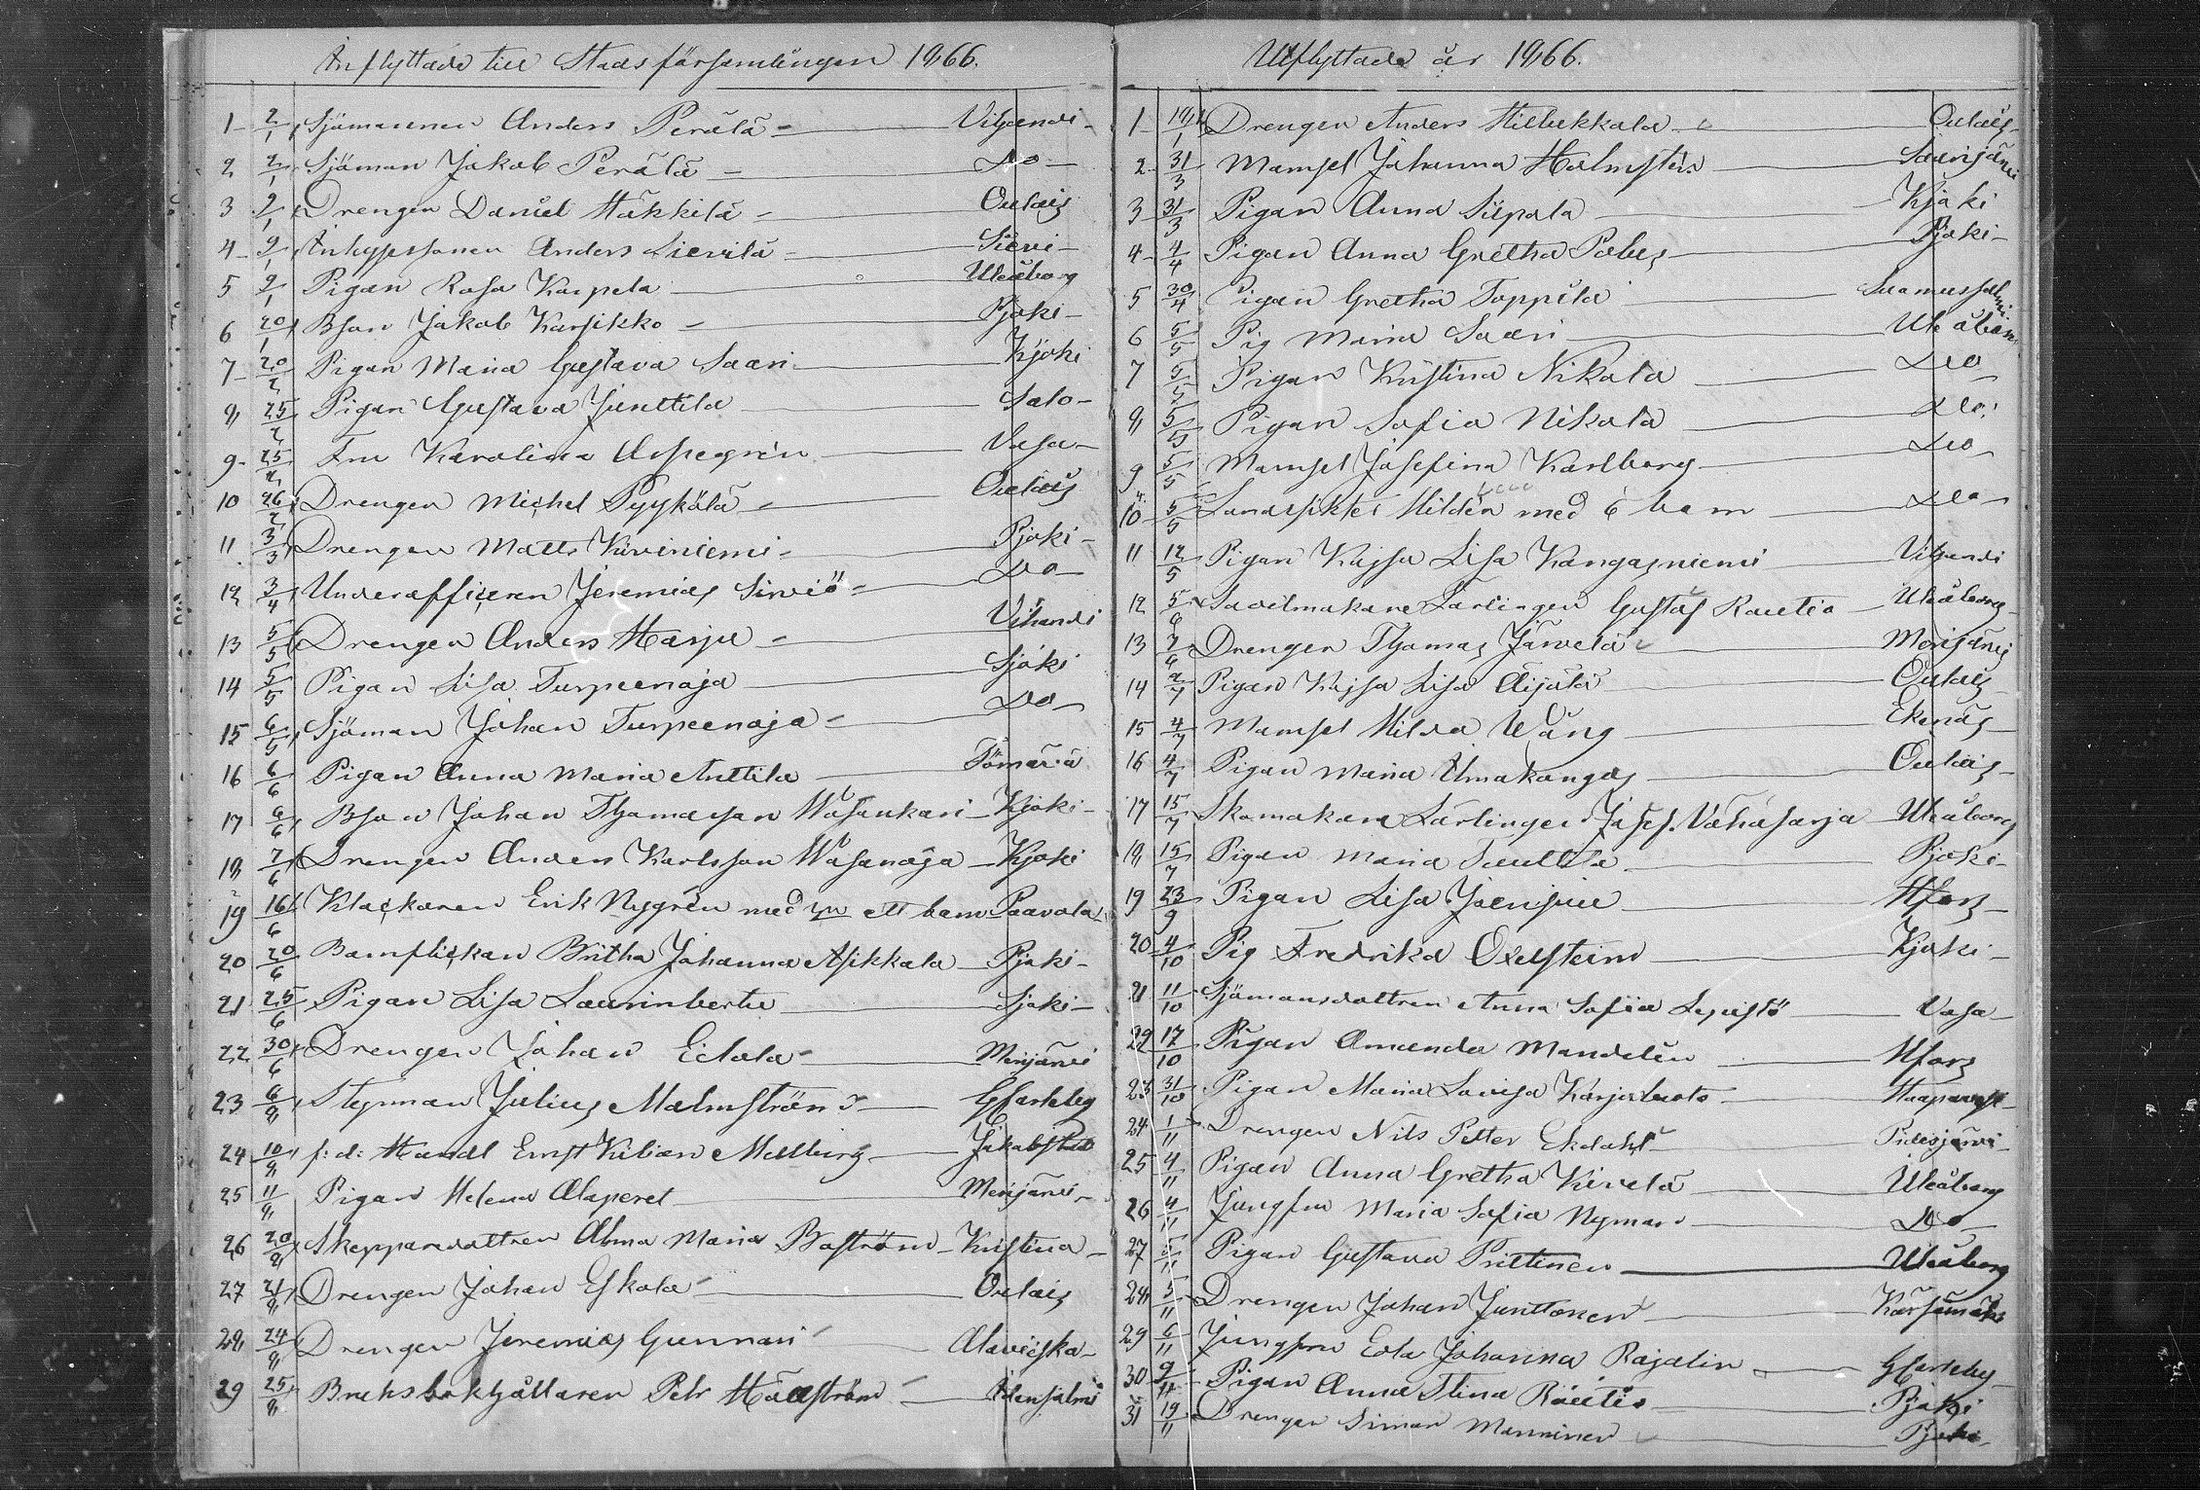 Inflyttade till Stadsförsamlingen 1866.
1 2/1 Sjömannen Anders Perälä Vihandi
2 2/1 Sjöman Jakob Perälä Do
3 9/1 Drengen Daniel Häkkilä Oulais
4 9/1 Inhyssonen Anders Sievilä Sievi
5 9/1 Pigan Rosa Karpela Uleåborg
6 20/1 Bson Jakob Karsikko Pjoki
7 20/2 Pigan Maria Gustava Saari Kjoki
8 25/2 Pigan Gustava Junttila Salo
9 25/2 Fru Karolina Aspegrén Vasa
10 26/2 Drengen Michel Pyykölä Oulais
11 3/3 Drengen Matts Kiviniemi Pjoki
12 3/4 Underofficeren Jeremias Sirviö Do
13 5/5 Drengen Anders Harju Vihandi
14 5/5 Pigan Lisa Turpeenoja Sjoki
15 6/5 Sjöman Johan Turpeenoja Do
16 6/6 Pigan Anna Maria Anttila
17 6/6 Bson Johan Thomasson Wasankari Kjoki
18 7/6 Drengen Anders Karlsson Wasanoja Kjoki
19 16/6 Klockaren Erik Nygrén med ett barn Paavola
20 20/6 Barnflickan Britha Johanna Asikkala Pjoki
21 25/6 Pigan Lisa Sjoki
22 30/6 Drengen Johan Eskola Merijärvi
23 6/8 Styrman Julius Malmström Gkarleby
24 10/8 f: d: Handl Ernst Kilian Mellberg Jakobstad
25 11/8 Pigan Helena Alaperet Merijärvi
26 20/8 Skepparedottren Alma Maria Boström Kristina
27 21/8 Drengen Johan Eskola Oulais
28 24/8 Drengen Jeremias Gunnari Alavieska
29 25/8 Bruksbokhållaren Petr Hällström Idensalmi
Utflyttade år 1866.
1 18/1 Drengen Anders Hillukkala Oulais
2 31/3 Mamsel Johanna Holmstén Saarijärvi
3 31/3 Pigan Anna Siipola Kjoki
4 4/4 Pigan Anna Gretha Pjoki
5 30/4 Pigan Gretha Toppila Suomussalmi
6 5/5 Pig Maria Saari Uleåborg
7 5/5 Pigan Kristina Nikola Do
8 5/5 Pigan Sofia Nikola Do
9 5/5 Mamsel Josefina Karlborg Do
10 5/5 Hildén med 6 barn Do
11 12/5 Pigan Kajsa Lisa Kangasniemi Vihandi
12 5/6 Lärlingen Gustaf Rautio Uleåborg
13 7/6 Drengen Thomas Järvelä Merijärvi
14 2/7 Pigan Kajsa Lisa Äijälä Oulais
15 4/7 Mamsel Hilda Wång Ekenäs
16 4/7 Pigan Maria Ulmakangas Oulais
17 15/7 Skomakare Lärlingen Josef Vähäsarja Uleåborg
18 15/7 Pigan Maria Tanttila Pjoki
19 23/9 Pigan Lisa Hfors
20 4/10 Pig Fredrika Oxelstein Kjoki
21 11/10 Sjömansdottren Anna Sofia Lepistö Vasa
22 17/10 Pigan Amanda Mandelin Hfors
23 31/10 Pigan Maria Lovisa Karjaluoto Haapavesi
24 1/11 Drengen Nils Petter Ekdahl Pidisjärvi
25 4/11 Pigan Anna Gretha Kivelä Uleåborg
26 4/11 Jungfru Maria Sofia Nyman Do
27 5/11 Pigan Gustava Prittinen Uleåborg
28 5/11 Drengen Johan Junttonen Kärsämäki
29 6/11 Jungfru Eda Johanna Rajalin Gkarleby
30 9/11 Pigan Anna Stina Rautio Pjoki
31 19/11 Drengen Simon Manninen Pjoki